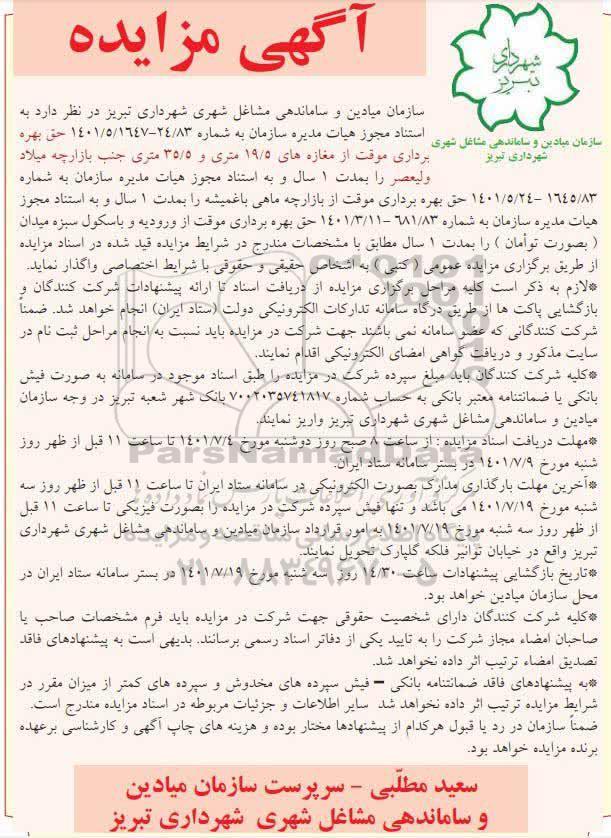 آگهی مزایده
شهرداری
تبریز
سازمان میادین و ساماندهی مشاغل شهری
شهرداری تبریز
سازمان میادین و ساماندهی مشاغل شهری شهرداری تبریز در نظر دارد به
استناد مجوز هیات مدیره سازمان به شماره ۲۴/۸۳-۱۴۰۱/۵/۱۶۴۷ حق بهره
برداری موقت از مغازه های ۱۹/۵ متری و ۳۵/۵ متری جنب بازارچه میلاد
ولیعصر را بمدت ۱ سال و به استناد مجوز هیات مدیره سازمان به شماره
۱۶۴۵/۸۳ -۱۴۰۱/۵/۲۴ حق بهره برداری موقت از بازارچه ماهی باغمیشه را بمدت ۱ سال و به استناد مجوز
هیات مدیره سازمان به شماره ۶۸۱/۸۳ -۱۴۰۱/۳/۱۱ حق بهره برداری موقت از ورودیه و باسکول سبزه میدان
( بصورت توأمان ) را بمدت ۱ سال مطابق با مشخصات مندرج در شرایط مزایده قید شده در اسناد مزایده
از طریق برگزاری مزایده عمومی ( کتبی ) به اشخاص حقیقی و حقوقی با شرایط اختصاصی واگذار نماید.
*لازم به ذکر است کلیه مراحل برگزاری مزایده از دریافت اسناد تا ارائه پیشنهادات شرکت کنندگان و
بازگشایی پاکت ها از طریق درگاه سامانه تدارکات الکترونیکی دولت (ستاد ایران) انجام خواهد شد. ضمناً
شرکت کنندگانی که عضو سامانه نمی باشند جهت شرکت در مزایده باید نسبت به انجام مراحل ثبت نام در
سایت مذکور و دریافت گواهی امضای الکترونیکی اقدام نمایند.
*کلیه شرکت کنندگان باید مبلغ سپرده شرکت در مزایده را طبق اسناد موجود در سامانه به صورت فیش
بانکی یا ضمانتنامه معتبر بانکی به حساب شماره ۷۰۰۲۰۳۵۷۴۱۸۱۷ بانک شهر شعبه تبریز در وجه سازمان
میادین و ساماندهی مشاغل شهری شهرداری تبریز واریز نمایند.
*مهلت دریافت اسناد مزایده : از ساعت ۸ صبح روز دوشنبه مورخ ۱۴۰۱/۷/۴ تا ساعت ۱۱ قبل از ظهر روز
شنبه مورخ ۱۴۰۱/۷/۹ در بستر سامانه ستاد ایران.
*آخرین مهلت بارگذاری مدارک بصورت الکترونیکی در سامانه ستاد ایران تا ساعت ۱۱ قبل از ظهر روز سه
شنبه مورخ ۱۴۰۱/۷/۱۹ می باشد و تنها فیش سپرده شرکت در مزایده را بصورت فیزیکی تا ساعت ۱۱ قبل
از ظهر روز سه شنبه مورخ ۱۴۰۱/۷/۱۹ به امور قرارداد سازمان میادین و ساماندهی مشاغل شهری شهرداری
تبریز واقع در خیابان توانیر فلکه گلپارک تحویل نمایند.
*تاریخ بازگشایی پیشنهادات ساعت ۱۴/۳۰ روز سه شنبه مورخ ۱۴۰۱/۷/۱۹ در بستر سامانه ستاد ایران در
محل سازمان میادین خواهد بود.
*کلیه شرکت کنندگان دارای شخصیت حقوقی جهت شرکت در مزایده باید فرم مشخصات صاحب یا
صاحبان امضاء مجاز شرکت را به تایید یکی از دفاتر اسناد رسمی برسانند. بدیهی است به پیشنهادهای فاقد
تصدیق امضاء ترتیب اثر داده نخواهد شد.
*به پیشنهادهای فاقد ضمانتنامه بانکی – فیش سپرده های مخدوش و سپرده های کمتر از میزان مقرر در
شرایط مزایده ترتیب اثر داده نخواهد شد سایر اطلاعات و جزئیات مربوطه در اسناد مزایده مندرج است.
ضمناً سازمان در رد یا قبول هرکدام از پیشنهادها مختار بوده و هزینه های چاپ آگهی و کارشناسی برعهده
برنده مزایده خواهد بود.
سعید مطلّبی - سرپرست سازمان میادین
و ساماندهی مشاغل شهری شهرداری تبریز
ParsNamadData